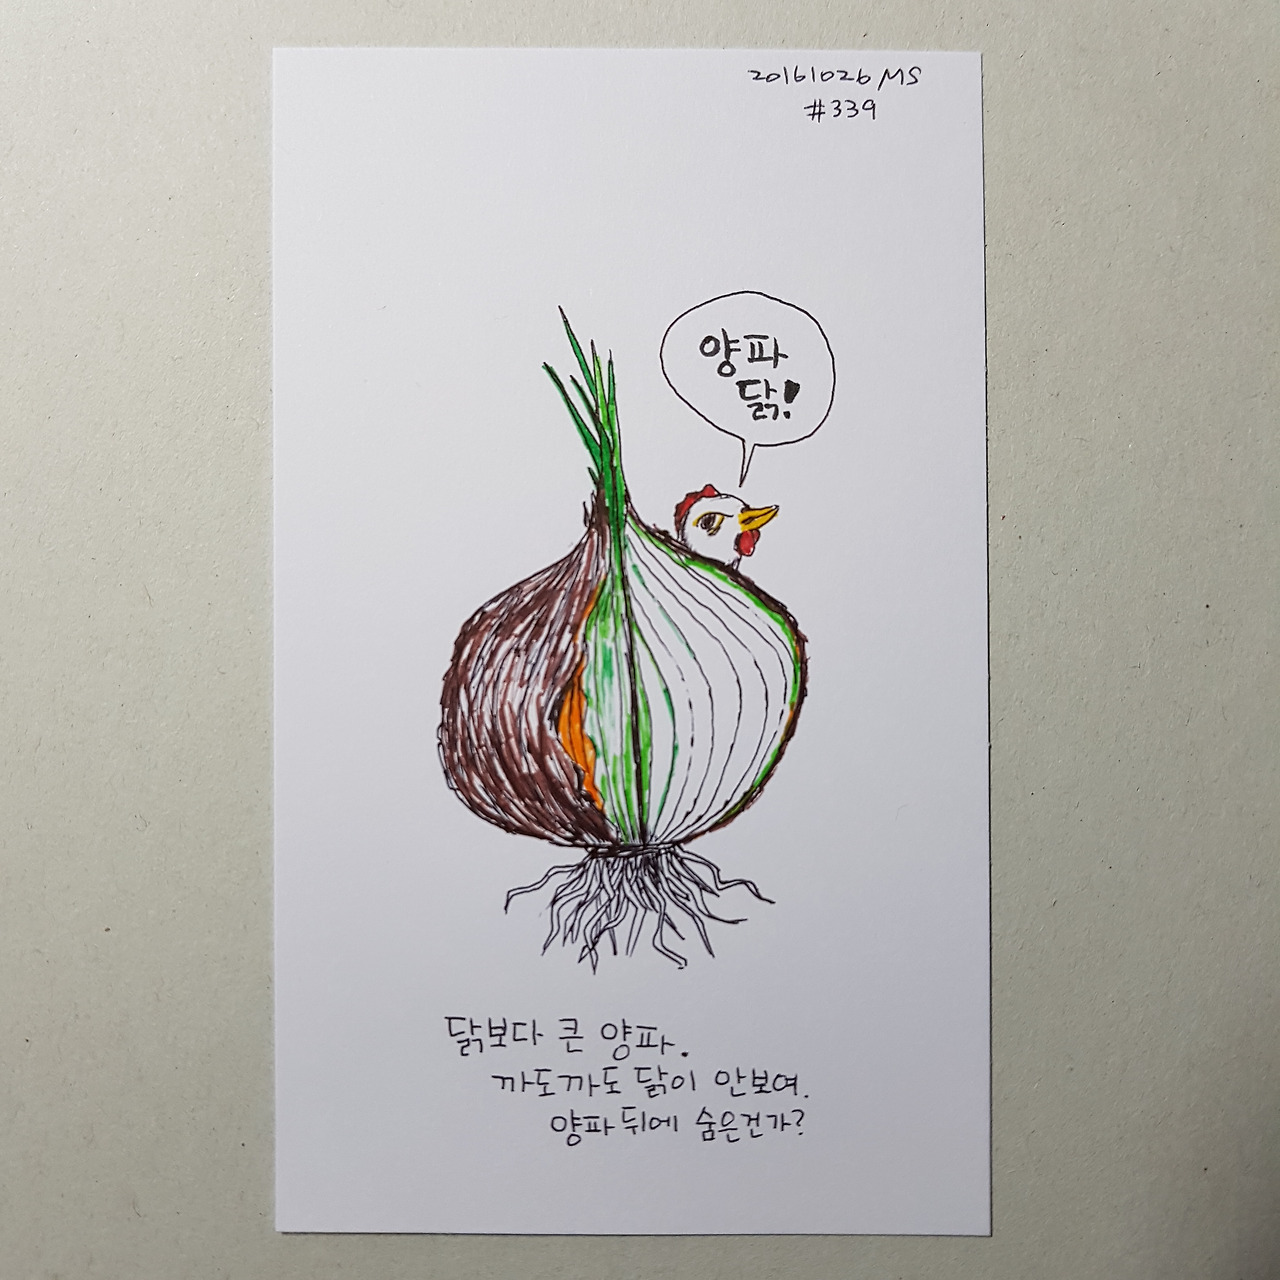 20161026 MS
#339
양파
닭!
닭보다 큰 양파.
까도까도 닭이 안보여.
양파 뒤에 숨은건가?